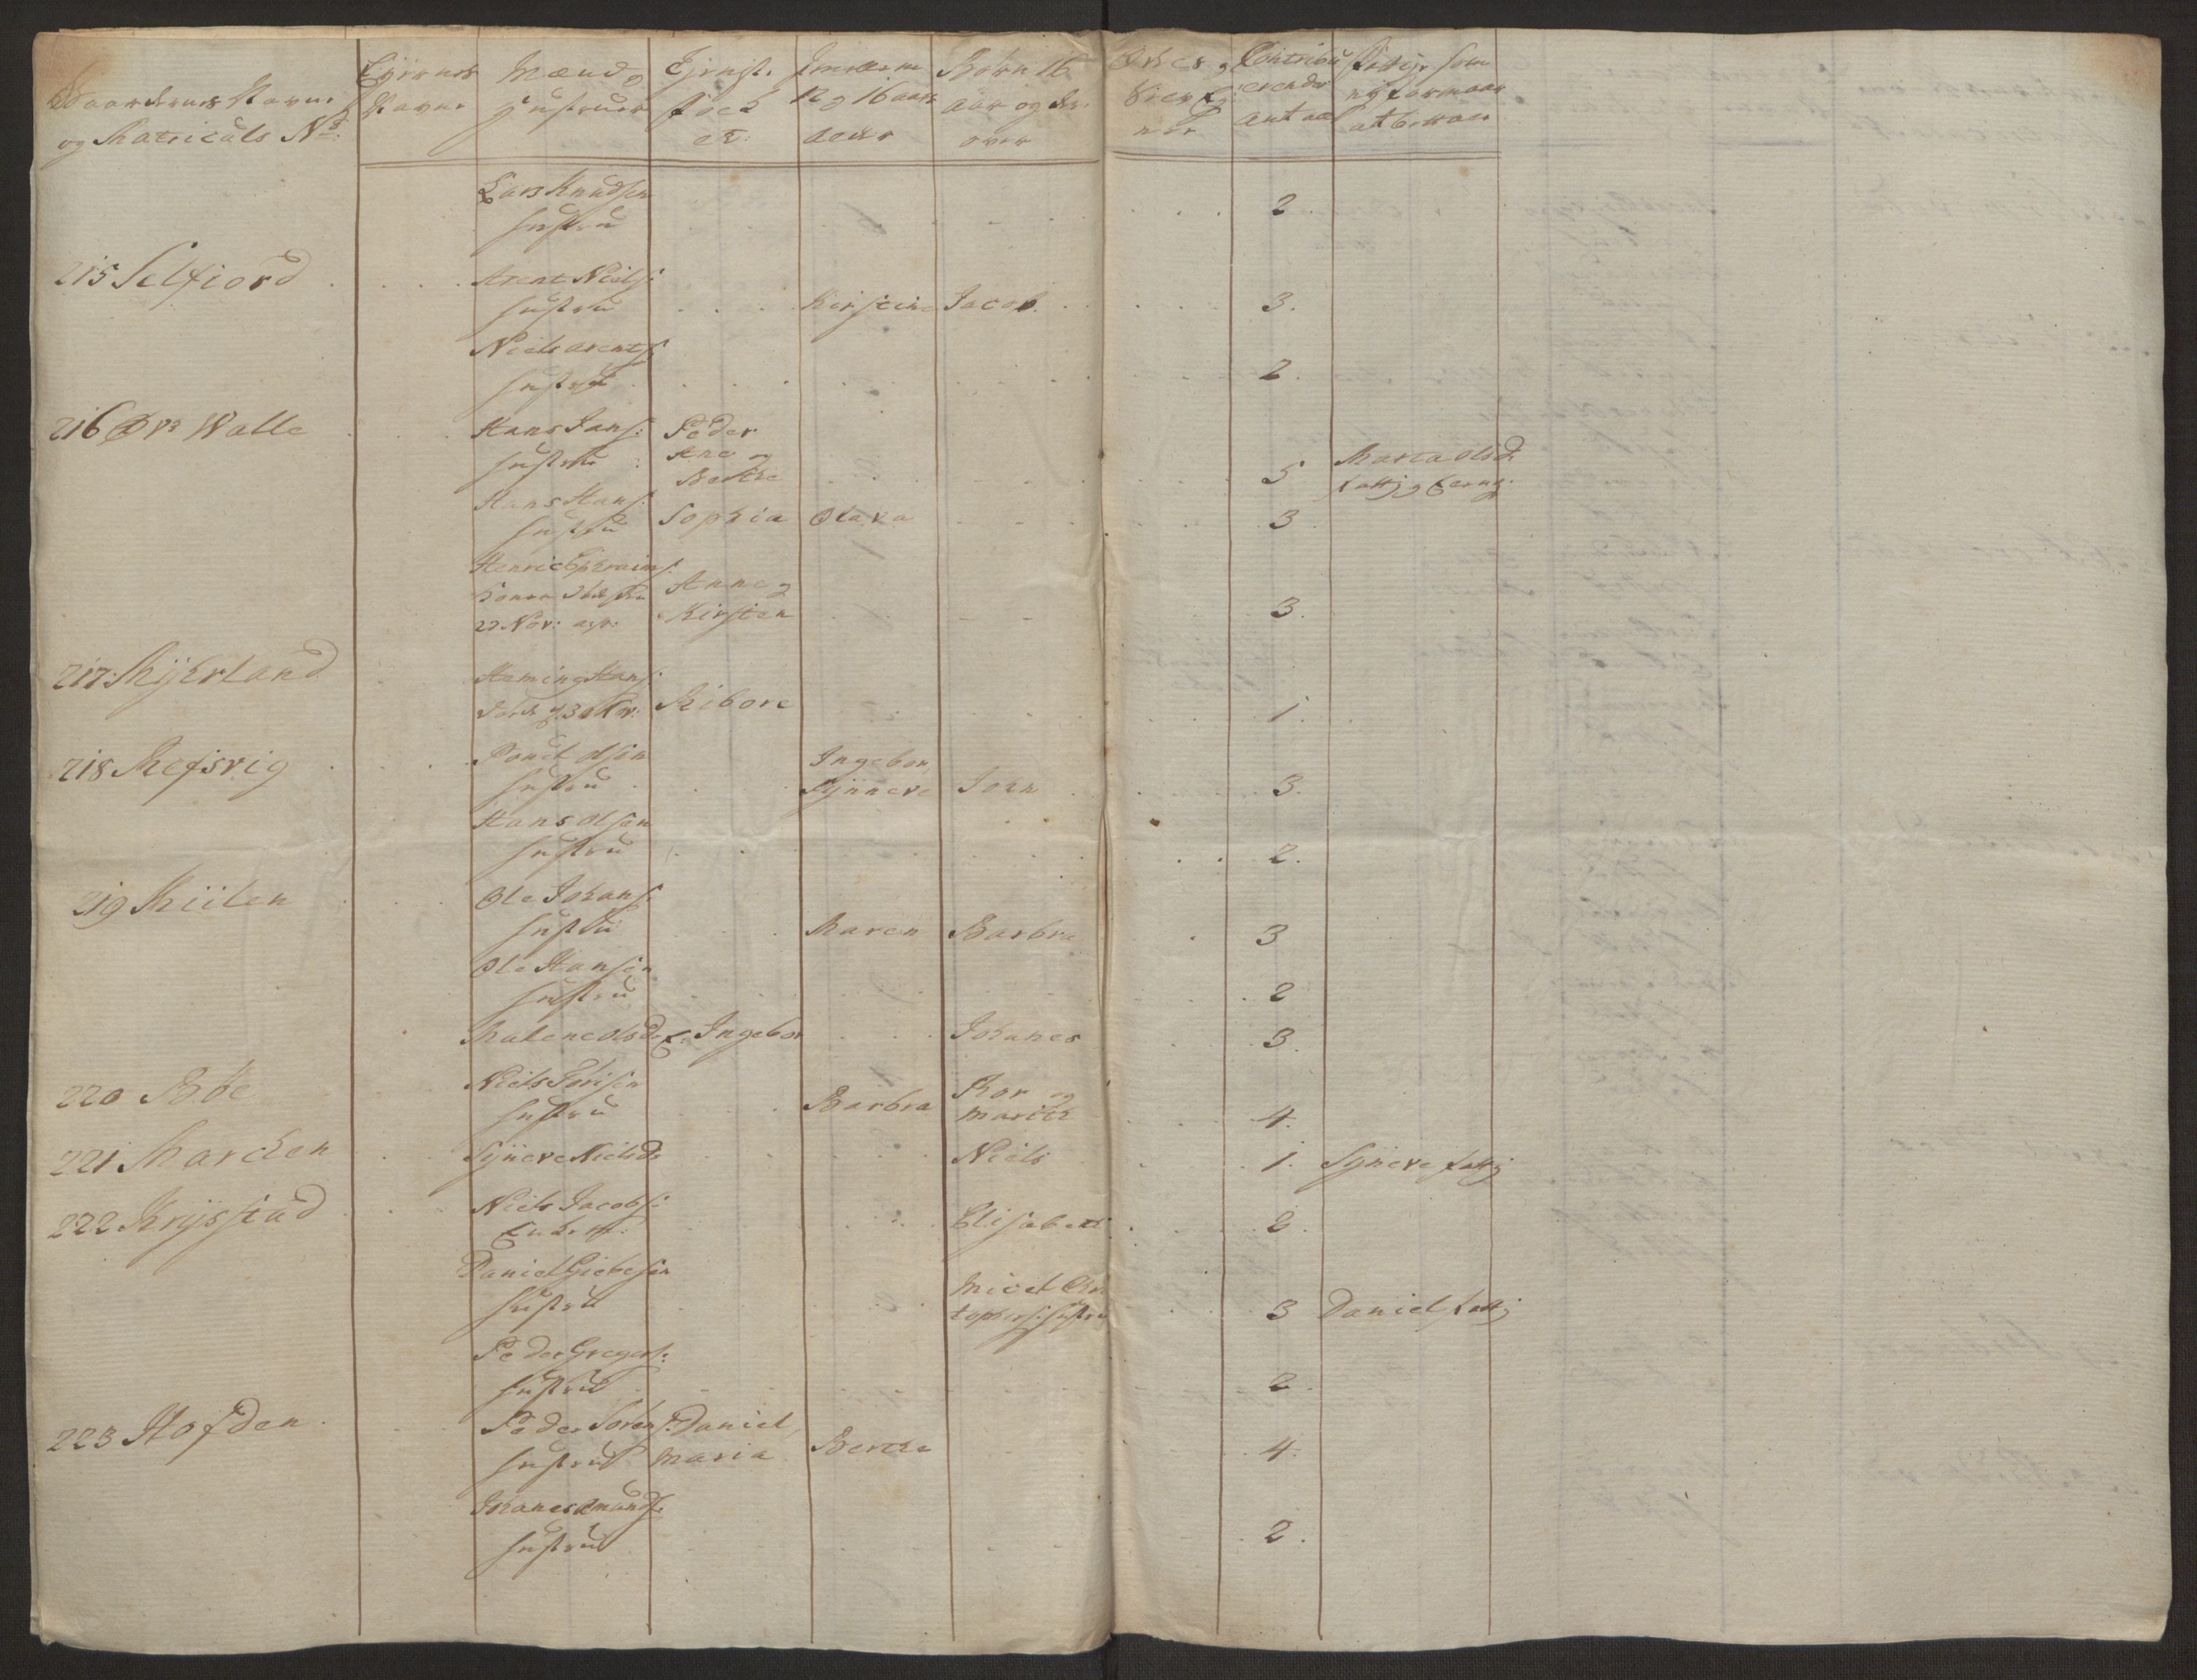 Gaardenes Navne og Matriculs No:
Eyernes Navne
Mænd og Hustruer
Tjenstefolck
Imellem 12 og 16 aars alder
Børn 16 aar og der over
Contribuerende antal
Fattige som ny formaar at betale
Lars Knudsen
hustru
2
215 Selfiord
Arent Niels:
hustru
Kirstine
Jacob
3.
Niels arents:
hustru
2.
216 Øvr Walle
Hans Jans:
hustru
Peder
Ane og
Berthe
5
Marta Olsd:
fattig
Hans Hans:
hustru
Sophia
Olava
3
Henric Ephraims:
22 Nov:
Anne og
Kirsten
3.
217: Myhrland
Heming Hans:
Ribore
1.
218 Refsvig
Poul olsen
hustru
Ingebor
Synneve
John
3.
Hans olsen
hustru
2.
219 Miilen
Ole Johans:
hustru
Maren
Barbra
3
Ole Hansen
hustru
2
Malene olsd:
E. Ingebor
Johanes
3.
220 Bøe
Niels
hustru
Barbra
Thor og
marith
4.
221 Marcken
Synneve Nielsd:
Niels
1.
Synneve fattig
222 Krystad
Niels Jacobs:
Enkem:
Elisabeth
2.
Daniel Giebesen
hustru
Micel Chr
tophers: hustru
3
Daniel fattig
Peder Gregers:
hustru
2.
223 Hofden
Peder Sørens:
hustru
Daniel,
Maria
Berthe
4.
Johanes Amunds:
hustru
2.